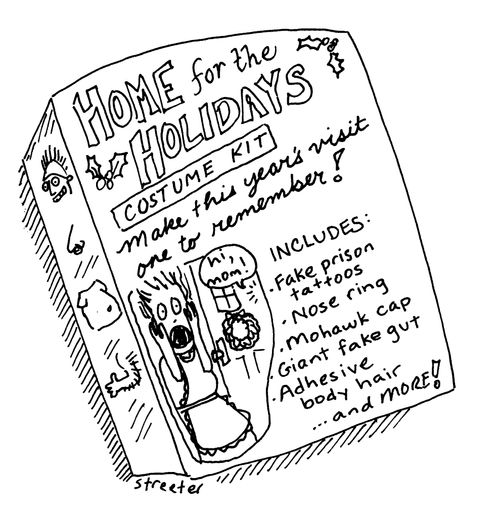 HOME for the
HOLIDAYS
COSTUME KIT
Make this year's visit
one to remember!
hi,
mom!
INCLUDES:
·Fake prison
tattoos
·Nose ring
·Mohawk cap
·Giant fake gut
·Adhesive
body hair
...and MORE!
streeter